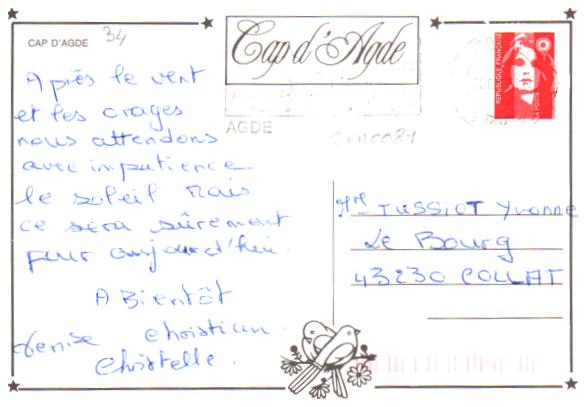 CAP D'AGDE
34
Cap d'Agde
AGDE
REPUBLIQUE FRANÇAISE
LA POSTE
Après le vent
et les orages
nous attendons
avec impatience
le soleil mais
ce sera sûrement
pour aujourd'hui.
A Bientôt
Denise Christian.
Christelle.
Mme TUSSIOT Yvonne
Le Bourg
43230 COLLAT